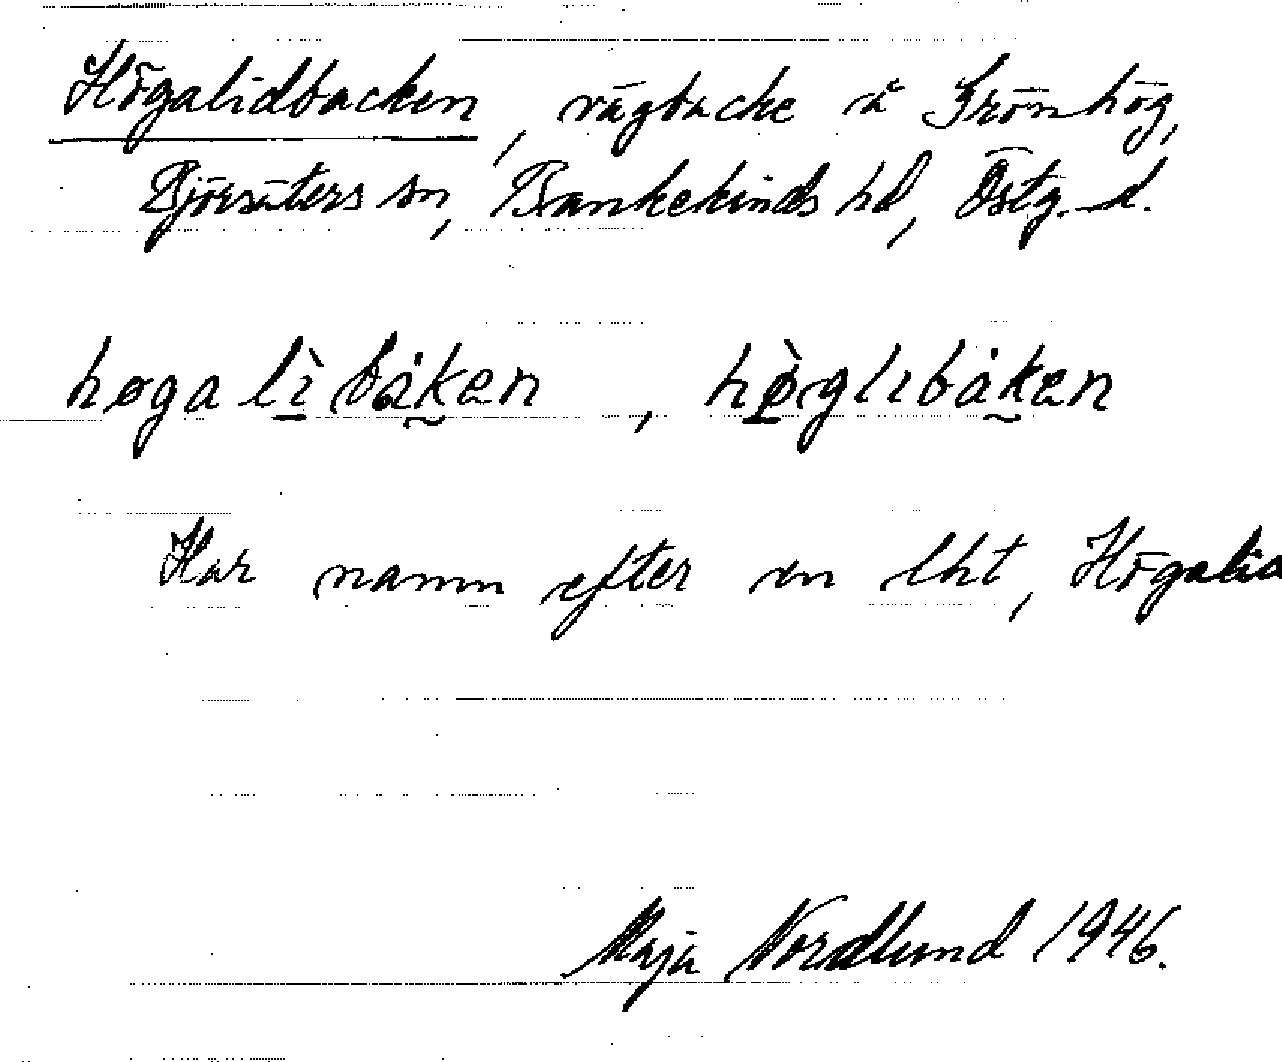 Högalidbacken, vägbacke å Grönhög,
Björsäters sn, Bankekinds hd, Östg. d.
høgalìbȧken, hø̀glıbȧken
Har namn efter en lht, Högalid
Maja Nordlund 1946.